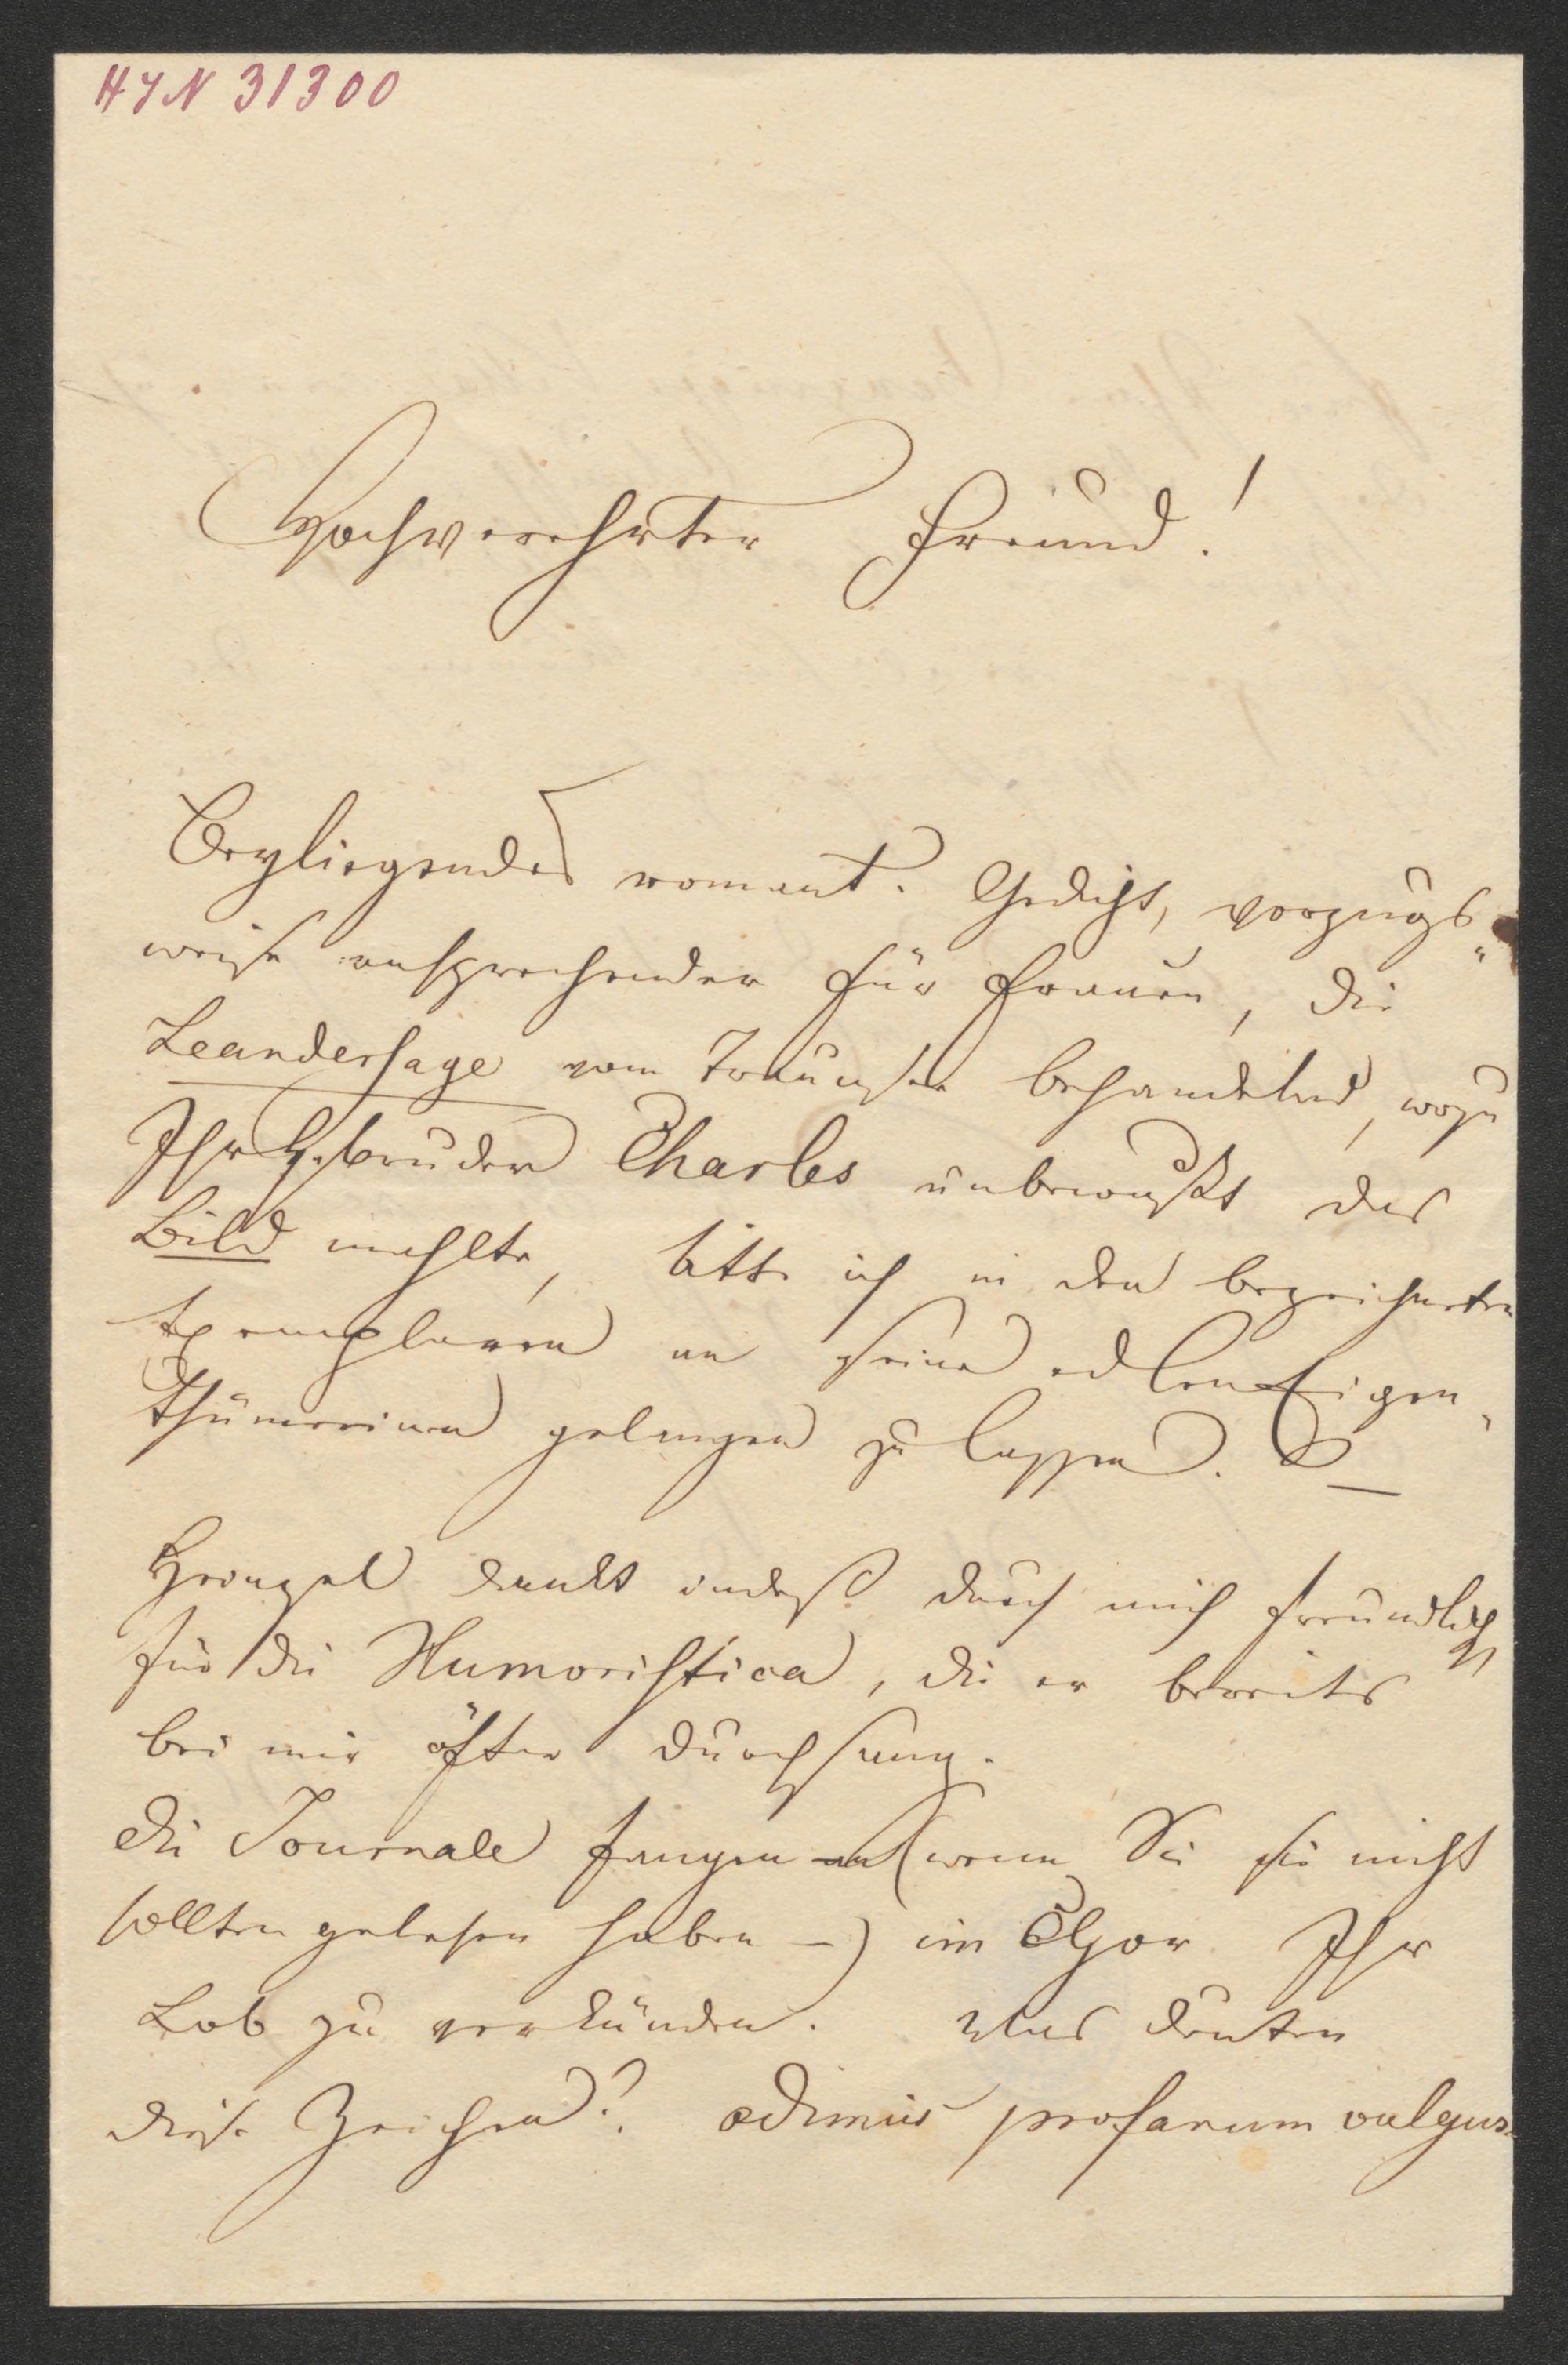 HIN 31300
Hochverehrter Freund!
Beyliegendes romant. Gedicht, vorzugs„
weise ansprechender für Frauen, die
Leandersage vom Traunsee behandelnd, wozu
Ihr H. Bruder Charles unbewußt das
Bild mahlte, bitte ich in den bezeichneten
Exemplaren an seine edlen Eigen„
thümerinen gelangen zu lassen. –
dankt indeß durch mich freundlichst
für die Humoristica, die er bereits
bei mir öfter durchsang.
Die Journale fangen an (wenn Sie sie nicht
sollten gelesen haben –) im Chor Ihr
Lob zu verkünden. Was deuten
diese Zeichen? odimus profanum vulgus.